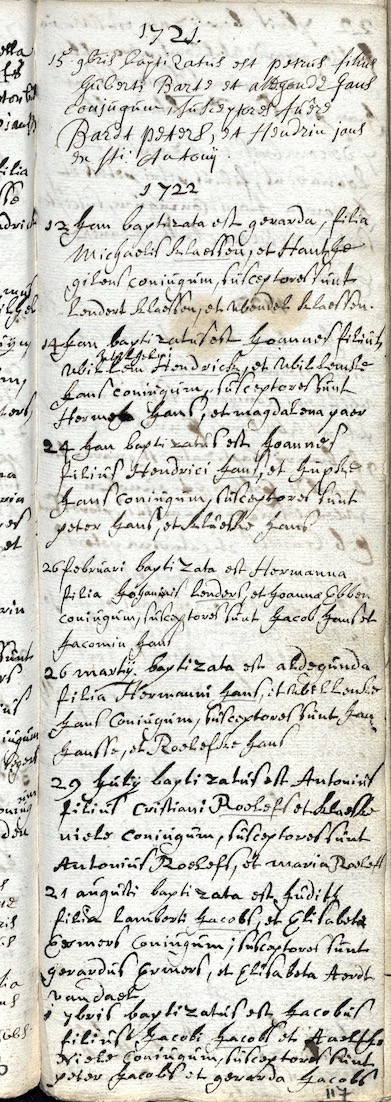 1721.
15 9bris baptizatus est petrus filius
Guberti Barte et aldegondæ Jans
conjugum susceptores fuere
Bardt peters, et Hendrin jans
en sti Antonij.
1722
12 Jan baptizata est gerarda, filia
Michaelis klaessen, et Hantje
gilens coniugum, susceptores sunt
Lendert klaessen, et Wbendel klaessen.
14 Jan baptizatus est Joannes filius
Wbillem Hendricks, et Wbillemke
Jans coniugum, susceptores sunt
Hermen Jans, et magdalena paer
24 Jan baptizatus est Joannes
filius Hendrici Jans, et Jupke
Jans coniugum, susceptores sunt
peter Jans, et klueske Jans
26 februari baptizata est Hermanna
filia Johannis Lenders, et Joanna Ebben
coniugum, susceptores sunt Jacob Jans et
Jacomin Jans
26 martij baptizata est aldegunda
filia Hermanni Jans, et Wbellemke
Jans coniugum, susceptores sunt Jan
Jansse, et Roelefke Jans
29 July baptizatus est Antonius
filius Cristiani Roelefs et klaeske
niele coniugum, susceptores sunt
Antonius Roelefs, et maria Roelefs
21 augusti baptizata est Judith
filia Lamberti Jacobs, et Elisabeta
Ermers coniugum, susceptores sunt
gerardus Ermers, et Elisabeta Aerdt
van dael
1 7bris baptizatus est Jacobus
filius Jacobi Jacobs et Aelfke
niele coniugum, susceptores sunt
peter Jacobs et gerarda Jacobs
117